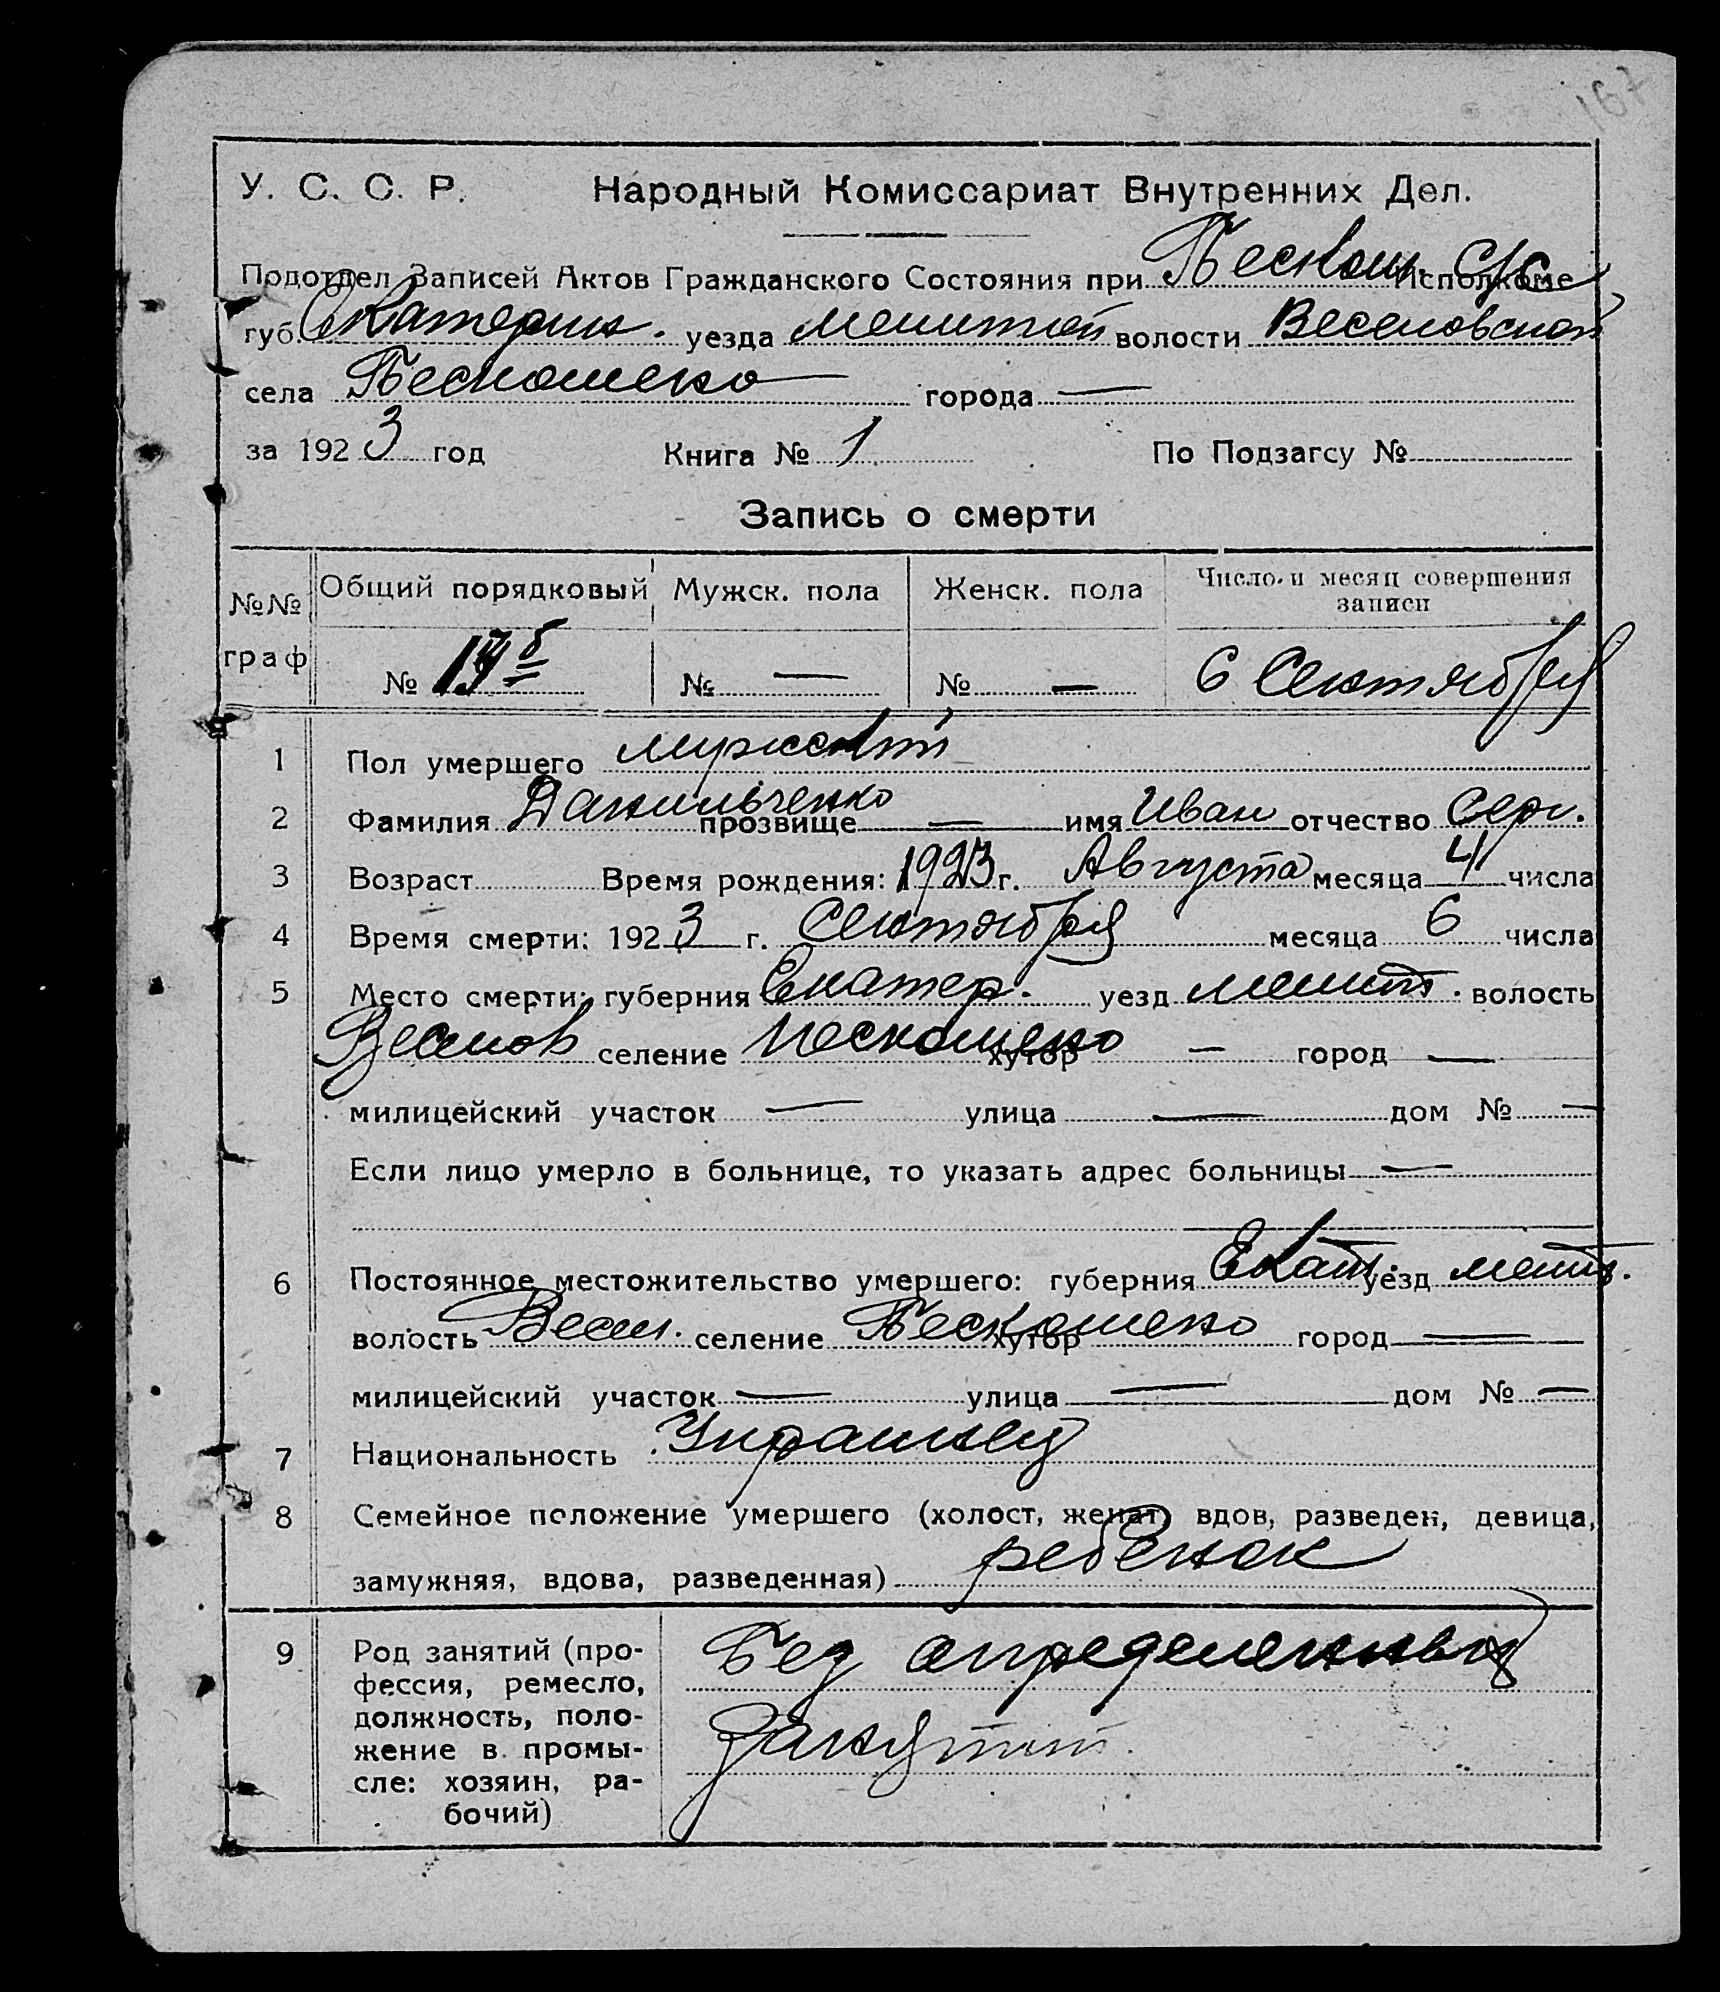 167
У. С. С. Р. Народный Комиссариат Внутренних Дел.
Подотдел Записей Актов Гражданского Состояния при Песком. С/С Исполкоме
губ. Екатерин. уезда Мелитоп волости Веселовской
села Пескошено города —
за 1923 год Книга № 1 По Подзагсу №
Запись о смерти
№№ граф Общий порядковый Мужск. пола Женск. пола Число и месяц совершения записи
№ № — № — 6 Сентября
1 Пол умершего мужской
2 Фамилия Данильченко прозвище — имя Иван отчество Серг.
3 Возраст Время рождения: 1923 г. Августа месяца 4 числа
4 Время смерти: 1923 г. Сентября месяца 6 числа
5 Место смерти: губерния Екатер. уезд Мелит. волость
Веселов селение Пескошено хутор — город —
милицейский участок — улица — дом № —
Если лицо умерло в больнице, то указать адрес больницы —
6 Постоянное местожительство умершего: губерния Екат. уезд Мелит.
волость Весел. селение Пескошено хутор город —
милицейский участок — улица — дом № —
7 Национальность Украинец
8 Семейное положение умершего (холост, женат, вдов, разведен, девица,
замужняя, вдова, разведенная) ребенок
9 Род занятий (про-
фессия, ремесло,
должность, поло-
жение в промы-
сле: хозяин, ра-
бочий)
Без определенных
занятий